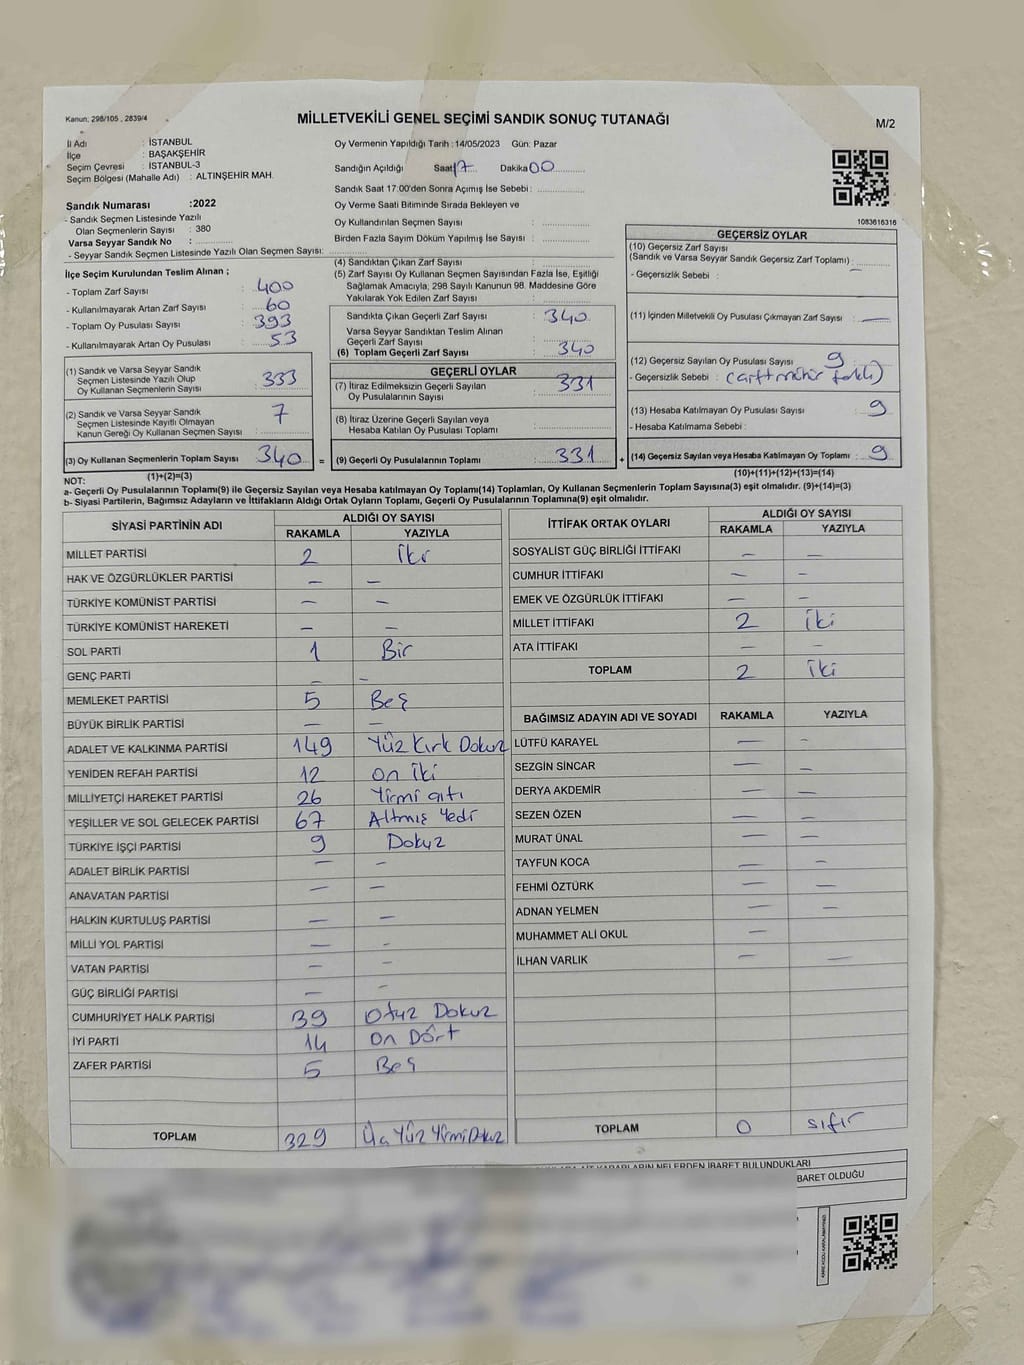 Kanun: 298/105 , 2839/4
MİLLETVEKİLİ GENEL SEÇİMİ SANDIK SONUÇ TUTANAĞI
M/2
İl Adı : İSTANBUL
İlçe : BAŞAKŞEHİR
Seçim Çevresi : İSTANBUL-3
Seçim Bölgesi (Mahalle Adı) : ALTINŞEHİR MAH.
Sandık Numarası :2022
- Sandık Seçmen Listesinde Yazılı
Olan Seçmenlerin Sayısı : 380
Varsa Seyyar Sandık No :
- Seyyar Sandık Seçmen Listesinde Yazılı Olan Seçmen Sayısı:
İlçe Seçim Kurulundan Teslim Alınan ;
- Toplam Zarf Sayısı : 400
- Kullanılmayarak Artan Zarf Sayısı : 60
- Toplam Oy Pusulası Sayısı : 393
- Kullanılmayarak Artan Oy Pusulası : 53
(1) Sandık ve Varsa Seyyar Sandık
Seçmen Listesinde Yazılı Olup
Oy Kullanan Seçmenlerin Sayısı : 333
(2) Sandık ve Varsa Seyyar Sandık
Seçmen Listesinde Kayıtlı Olmayan
Kanun Gereği Oy Kullanan Seçmen Sayısı : 7
(3) Oy Kullanan Seçmenlerin Toplam Sayısı : 340 =
(1)+(2)=(3)
Oy Vermenin Yapıldığı Tarih : 14/05/2023 Gün: Pazar
Sandığın Açıldığı Saat 17 Dakika 00
Sandık Saat 17:00'den Sonra Açımış İse Sebebi :
Oy Verme Saati Bitiminde Sırada Bekleyen ve
Oy Kullandırılan Seçmen Sayısı :
Birden Fazla Sayım Döküm Yapılmış İse Sayısı :
(4) Sandıktan Çıkan Zarf Sayısı :
(5) Zarf Sayısı Oy Kullanan Seçmen Sayısından Fazla İse, Eşitliği
Sağlamak Amacıyla; 298 Sayılı Kanunun 98. Maddesine Göre
Yakılarak Yok Edilen Zarf Sayısı :
Sandıkta Çıkan Geçerli Zarf Sayısı : 340
Varsa Seyyar Sandıktan Teslim Alınan
Geçerli Zarf Sayısı :
(6) Toplam Geçerli Zarf Sayısı : 340
GEÇERLİ OYLAR
(7) İtiraz Edilmeksizin Geçerli Sayılan
Oy Pusulalarının Sayısı : 331
(8) İtiraz Üzerine Geçerli Sayılan veya
Hesaba Katılan Oy Pusulası Toplamı :
(9) Geçerli Oy Pusulalarının Toplamı : 331 +
1083616316
GEÇERSİZ OYLAR
(10) Geçersiz Zarf Sayısı
(Sandık ve Varsa Seyyar Sandık Geçersiz Zarf Toplamı) :
- Geçersizlik Sebebi : —
(11) İçinden Milletvekili Oy Pusulası Çıkmayan Zarf Sayısı : —
(12) Geçersiz Sayılan Oy Pusulası Sayısı : 9
- Geçersizlik Sebebi :
(13) Hesaba Katılmayan Oy Pusulası Sayısı : 9
- Hesaba Katılmama Sebebi :
(14) Geçersiz Sayılan veya Hesaba Katılmayan Oy Toplamı : 9
(10)+(11)+(12)+(13)=(14)
NOT:
a- Geçerli Oy Pusulalarının Toplamı(9) ile Geçersiz Sayılan veya Hesaba katılmayan Oy Toplamı(14) Toplamları, Oy Kullanan Seçmenlerin Toplam Sayısına(3) eşit olmalıdır. (9)+(14)=(3)
b- Siyasi Partilerin, Bağımsız Adayların ve İttifakların Aldığı Ortak Oyların Toplamı, Geçerli Oy Pusulalarının Toplamına(9) eşit olmalıdır.
SİYASİ PARTİNİN ADI ALDIĞI OY SAYISI
RAKAMLA YAZIYLA
MİLLET PARTİSİ 2 İki
HAK VE ÖZGÜRLÜKLER PARTİSİ — —
TÜRKİYE KOMÜNİST PARTİSİ — —
TÜRKİYE KOMÜNİST HAREKETİ — —
SOL PARTİ 1 Bir
GENÇ PARTİ — —
MEMLEKET PARTİSİ 5 Beş
BÜYÜK BİRLİK PARTİSİ — —
ADALET VE KALKINMA PARTİSİ 149 Yüz Kırk Dokuz
YENİDEN REFAH PARTİSİ 12 on iki
MİLLİYETÇİ HAREKET PARTİSİ 26 Yirmi altı
YEŞİLLER VE SOL GELECEK PARTİSİ 67 Altmış Yedi
TÜRKİYE İŞÇİ PARTİSİ 9 Dokuz
ADALET BİRLİK PARTİSİ — —
ANAVATAN PARTİSİ — —
HALKIN KURTULUŞ PARTİSİ — —
MİLLİ YOL PARTİSİ — —
VATAN PARTİSİ — —
GÜÇ BİRLİĞİ PARTİSİ — —
CUMHURİYET HALK PARTİSİ 39 Otuz Dokuz
İYİ PARTİ 14 On Dört
ZAFER PARTİSİ 5 Beş
TOPLAM 329 Üç Yüz Yirmi Dokuz
İTTİFAK ORTAK OYLARI ALDIĞI OY SAYISI
RAKAMLA YAZIYLA
SOSYALİST GÜÇ BİRLİĞİ İTTİFAKI — —
CUMHUR İTTİFAKI — —
EMEK VE ÖZGÜRLÜK İTTİFAKI — —
MİLLET İTTİFAKI 2 iki
ATA İTTİFAKI — —
TOPLAM 2 iki
BAĞIMSIZ ADAYIN ADI VE SOYADI RAKAMLA YAZIYLA
LÜTFÜ KARAYEL — —
SEZGİN SİNCAR — —
DERYA AKDEMİR — —
SEZEN ÖZEN — —
MURAT ÜNAL — —
TAYFUN KOCA — —
FEHMİ ÖZTÜRK — —
ADNAN YELMEN — —
MUHAMMET ALİ OKUL —
İLHAN VARLIK — —
TOPLAM 0 sıfır
KARARLARIN NELERDEN İBARET BULUNDUKLARI
BARET OLDUĞU